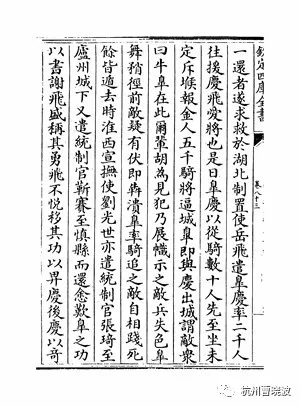 欽定四庫全書
卷八十三
一還者遂求救於湖北制置使岳飛遣臯慶率二千人
往援慶飛愛將也是日臯慶以從騎數十人先至坐未
定斥堠報金人五千騎將逼城臯即與慶出城謂敵衆
曰牛臯在此爾輩胡為見犯乃展幟示之敵兵失色臯
舞矟徑前敵疑有伏即奔潰臯率騎追之敵自相踐死
餘皆遁去時淮西宣撫使劉光世亦遣統制官張琦至
廬州城下又遣統制官靳賽至慎縣而還愈歎臯之功
以書謝飛盛稱其勇飛不悦移其功以畀慶後慶以奇
杭州曹晓波